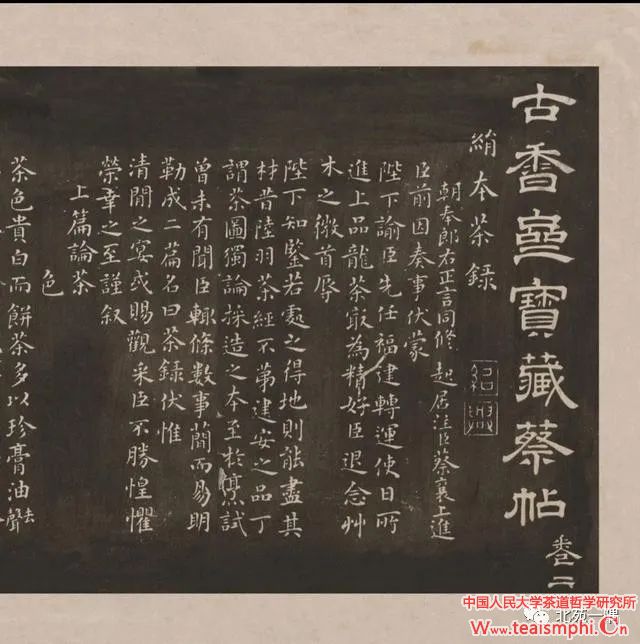 古香齋寶藏蔡帖 卷二
絹本茶録
紹興
朝奉郎右正言同修 起居注臣蔡襄上進
臣前因奏事伏蒙
陛下諭臣先任福建轉運使日所
進上品龍茶冣為精好臣退念艸
木之微首辱
陛下知鑒若處之得地則能盡其
材昔陸羽茶經不第建安之品丁
謂茶圖獨論採造之本至於烹試
曾未有聞臣輒條數事簡而易明
勒成二篇名曰茶録伏惟
清閒之宴或賜觀采臣不勝惶懼
榮幸之至謹叙
上篇論茶
色
茶色貴白而餅茶多以珍膏油去聲
中国人民大学茶道哲学研究所
北苑一隅
www.teaismphi.Cn